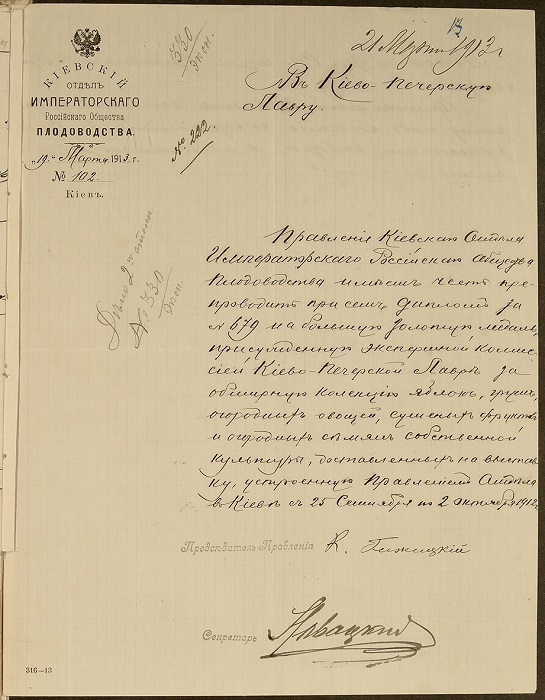 13
21 Марта 1913 г
КІЕВСКІЙ
ОТДѢЛЪ
ИМПЕРАТОРСКАГО
Россійскаго Общества
ПЛОДОВОДСТВА.
„19" Марта 1913 г.
№ 102
Кіевъ.
330
экон.
№ 222
Въ Кіево-Печерскую
Лавру.
Дѣло 2го стола
№ 330
экон.
Правленіе Кіевскаго Отдѣла
Императорскаго Россійскаго Общества
Плодоводства имѣетъ честь пре-
проводить при семъ дипломъ за
№ 679 на большую золотую медаль,
присужденную экспертной комис-
сіей Кіево-Печерской Лаврѣ за
обширную колекцію яблокъ, грушъ,
огородныхъ овощей, сушеныхъ фруктовъ
и огородныхъ сѣмянъ собственной
культуры, доставленныхъ на выстав-
ку, устроенную Правленіемъ Отдѣла
въ Кіевѣ съ 25 Сентября по 2 октября 1912 г.
Предсѣдатель Правленія К. Гижицкій
Секретарь
316—13